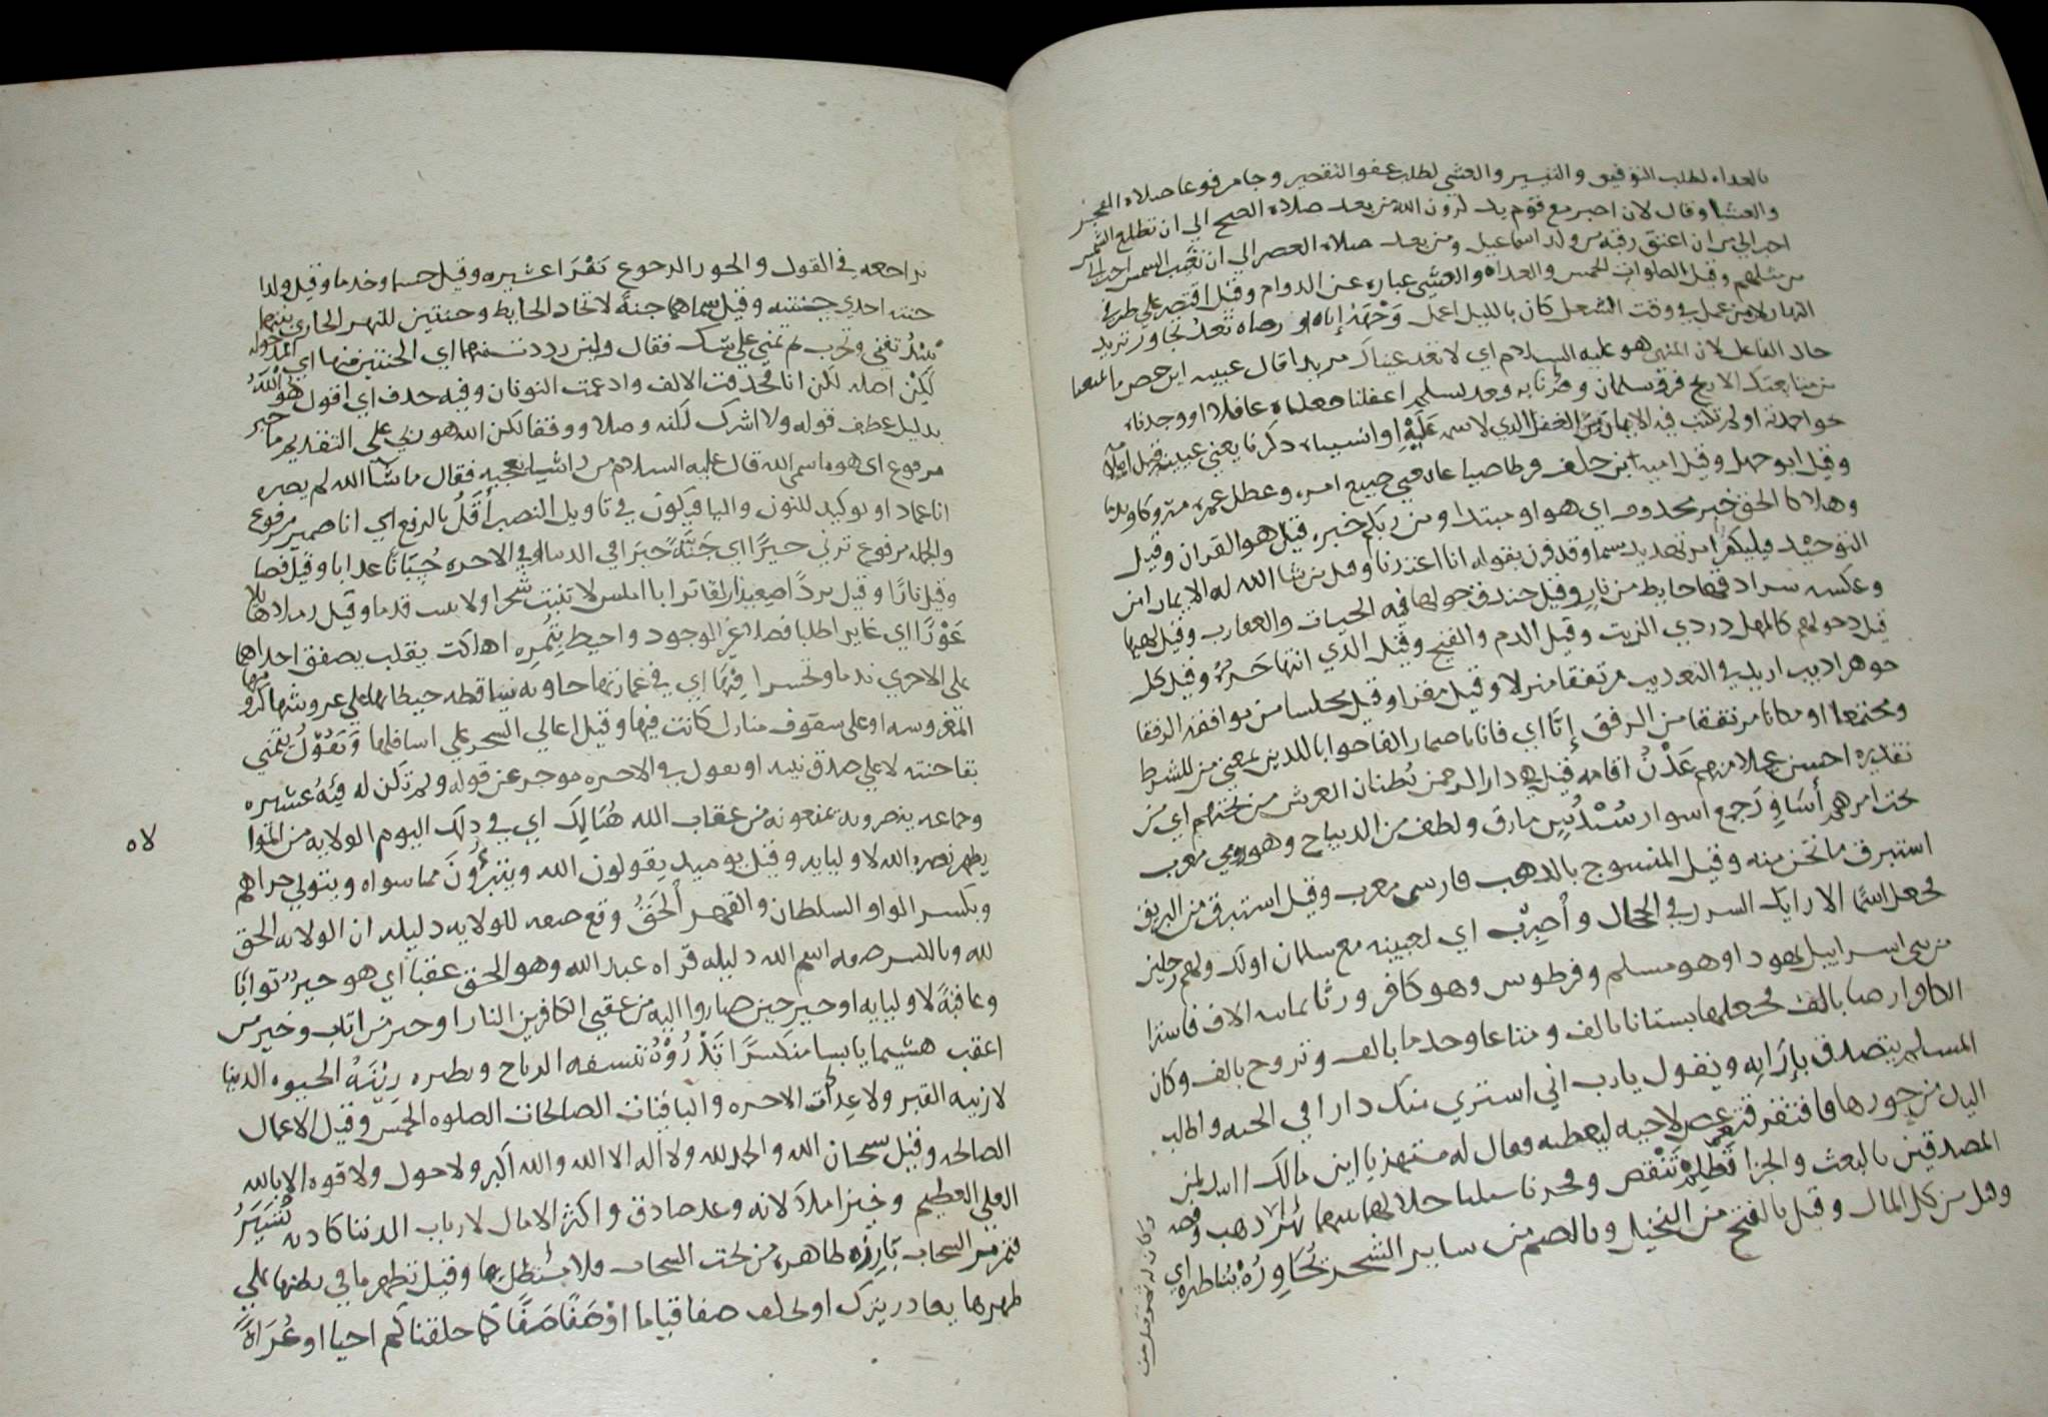 بالغداه لطلب التوفيق والتيسير والعشي لطلب عفو التقصير وجا مرفوعا صلاه الفجر
والعشا وقال لان اصبر مع قوم يذكرون الله من بعد صلاه الصبح الي ان تطلع الشمس
احب الي من ان اعتق رقبه من ولد اسماعيل ومن بعد صلاه العصر الي ان تغيب الشمس احب الي
من مثلهم وقيل الصلوات الخمس والغداه والعشي عباره عن الدوام وقيل اقتصر علي طرفي
النهار لان من عمل في وقت الشغل كان بالليل اعمل وَجْهَهُ إياه او رضاه تعدُ تجاوز تريد
حال الفاعل لان المنهي هو عليه السلام اي لا تعد عيناك مريدا قال عيينه ابن حصن ما يمنعنا
من متابعتك الا ريح فرق سلمان وضرنا به وعد لنسلم اغفلنا جعلناه غافلا او وجدناه
نحو احمدته او لم نكتب فيه الايمان من الغفل الذي لا سمه عَلَيْهِ او انسيناه ذكرنا يعني عيينه قيل اميه
وقيل ابو جهل وقيل اميه ابن خلف فرطا ضياعا فهي جميع امره وعطل عمره متروكا وندما
وهلاكا الحق خبر محذوف اي هو او مبتدا ومن ربكم خبره قيل هو القران وقيل
التوحيد فليكفر امر تهديد سيما وقد قرن بقوله انا اعتدنا وقيل من شا الله له الايمان امن
وعكسه سرادقها حايط من نار وقيل خندق حولها فيه الحيات والعقارب وقيل لهبها
قبل دخولهم كالمهل دردي الزيت وقيل الدم والقيح وقيل الذي انتها حَرُّهُ وقيل كل
جوهر اذيب اريد في التعذيب مرتفقا منزلا وقيل مقرا وقيل مجلسا من موافقه الرفقا
ومجتمعا او مكانا مرتفقا من الرفق إنَّا اي فانا باضمار الفا جوابا للذين بمعني من للشرط
تقديره احسن عملا منهم عَدْنُ اقامه قيل هي دار الرحمن بُطنان العرش من تحتهم اي من
تحت امرهم أسَاوِرَ جمع اسوار سُنْدُسٍ مارق ولطف من الديباج وهو رومي معرب
استبرق ما ثخن منه وقيل المنسوج بالذهب فارسي معرب وقيل استبرق من البريق
فجعل اسمًا الارايك السرر في الحجال وأضرب اي لعيينه مع سلمان اولك ولهم رجلين
من بني اسراييل يهودا وهو مسلم وفرطوس وهو كافر ورثا ثمانيه الاف فاشترا
الكافر ارضا بالف فجعلها بستانا بالف ومتاعا وخدما بالف وتزوج بالف وكان
المسلم يتصدق بإزَايه ويقول يارب اني اشتري منك دارا في الجنه واطلب
البدل من حورها فافتقر فتعرض لاخيه ليعطيه فقال له متهزيا اين مالك اانك لمن
المصدقين بالبعث والجزا تَظلم تَنْقص وفجرنا سيلنا خلالهما بينهما ثمرٌ ذهب وفضه
وقيل من كل المال وقيل بالفتح من النخيل وبالضم من ساير الشجر يُحَاوِرُهْ يُناظره اي
وكان له ثمر قيل من
تراجعه في القول والحور الرجوع نَفَرَا عشيره وقيل حشما وخدما وقيل ولدا
جنته احدي جنتيه وقيل سماهما جنةً لاتحاد الحايط وجنتين للنهر الجاري بينهما
تبيدُ تفني وتخرب لم تمني علي شك فقال ولين رددت منهما اي الجنتين منها اي المدخوله
لَكِنَّ اصله لكن انا فحذفت الالف وادغمت النونان وفيه حذف اي اقول هُوَ اللهُ
بدليل عطف قوله ولا اشرك لكنه وصلا ووقفا لكن الله هو ربي علي التقدير ما خبر
مرفوع اي هو ما سمي الله قال عليه السلام من راي شيا يعجبه فقال ما شا الله لم يضره
انا عماد او توكيد للنون واليا فيكون في تاويل النصب أَقَلُ بالرفع اي انا ضمير مرفوع
والجمله مرفوع ترني خيرًا اي جَنَّةً خيرَا في الدنيا او في الاخره حُسبَانًا عذابا وقيل قضا
وقيل نارًا وقيل بردًا صعِيدًا زَلقا ترابا املس لا تنبت شجرا ولا يثبت قدما وقيل رمادا هايلا
غَوْرًا اي غايرا طلبا فضلا عن الوجود واحيط بِثُمرِه اهلكت يقلب يصفق احداهما
علي الاخري ندما وتحسرا فِيْهَا اي في عمارتها خاويه ساقطه حيطانها علي عروشها كرومها
المغروسه او علي سقوف منازل كانت فيها وقيل اعالي الشجر علي اسافلها وَيَقُوْلُ يتمني
بقا جنته لا علي صدق نيه او يقول في الاخره موجز عن قوله ولم تكن له فِئَةُ عشيره
وجماعه ينصرونه يمنعونه من عقاب الله هُنَالِكَ اي في ذلك اليوم الولايه من التوا
يظهر نصره الله لاوليايه وقيل يوميذ يقولون الله ويتبرَّؤنَ مما سواه ويتولي جزاهم
وبكسر الواو السلطان والقهر الحَقُ وقع صفه للولايه دليله ان الولايه الحق
لله وبالكسر صفه اسم الله دليله قراه عبد الله وهو الحق عقبا اي هو خيرٌ ثوابًا
وعاقبةً لاوليايه او خير حين صاروا اليه من عقبي الكافرين النار او خير من اثاب وخير من
اعقب هشيما يابسا منكسرًا تَذْرُوْهُ تنسفه الرياح وتطيره زِيْنَةُ الحيوه الدنيا
لا زينه القبر ولا عدات الاخره والباقيات الصالحات الصلوه الخمس وقيل الاعمال
الصالحه وقيل سبحان الله والحمد لله ولا اله الا الله والله اكبر ولا حول ولا قوه الا بالله
العلي العظيم وخير املا لانه وعد صادق واكثر الامال لارباب الدنيا كاذبه نُسَيِّرُ
تمر مر السحاب بَارِزَه ظاهره من تحت السحاب فلا مستظل بها وقيل تظهر ما في بطنها علي
ظهرها يغادر يترك او يخلف صفا قياما اوْ صَفًا صَفًا كَمَا خلقناكم احيا او عُرَاةً
لاه